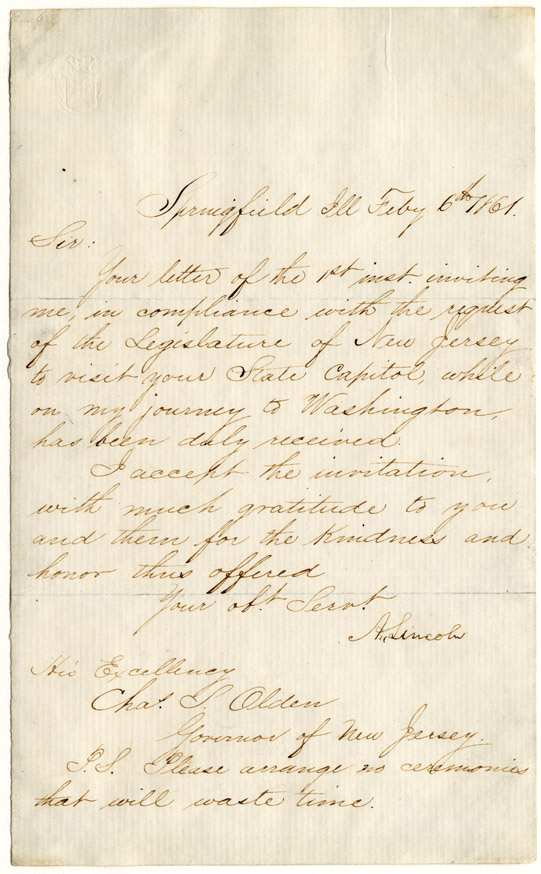 Springfield Ill Feby 6th 1861.
Sir:
Your letter of the 1st inst. inviting
me, in compliance with the request
of the Legislature of New Jersey
to visit your State Capitol, while
on my journey to Washington,
has been duly received.
I accept the invitation,
with much gratitude to you
and them for the kindness and
honor thus offered
Your obt. Servt.
A. Lincoln
His Excellency
Chas. S. Olden
Governor of New Jersey.
P.S. Please arrange no ceremonies
that will waste time.